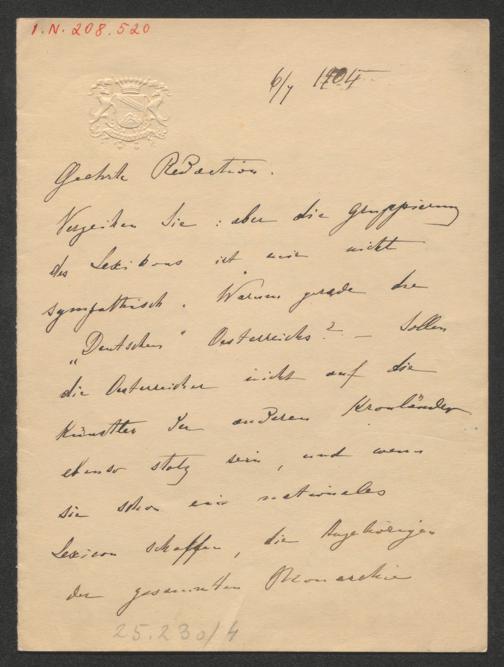 I.N. 208.520
6/7 1904
Geehrte Redaction.
Verzeihen Sie : aber die Gruppierung
des Lexikons ist mir nicht
sympathisch. Warum gerade die
„Deutschen" Oesterreichs? – Sollen
die Oesterreicher nicht auf die
Künstler der anderen Kronländer
ebenso stolz sein, und wenn
sie schon ein nationales
Lexicon schaffen, die Angehörigen
der gesammten Monarchie
25.230/4